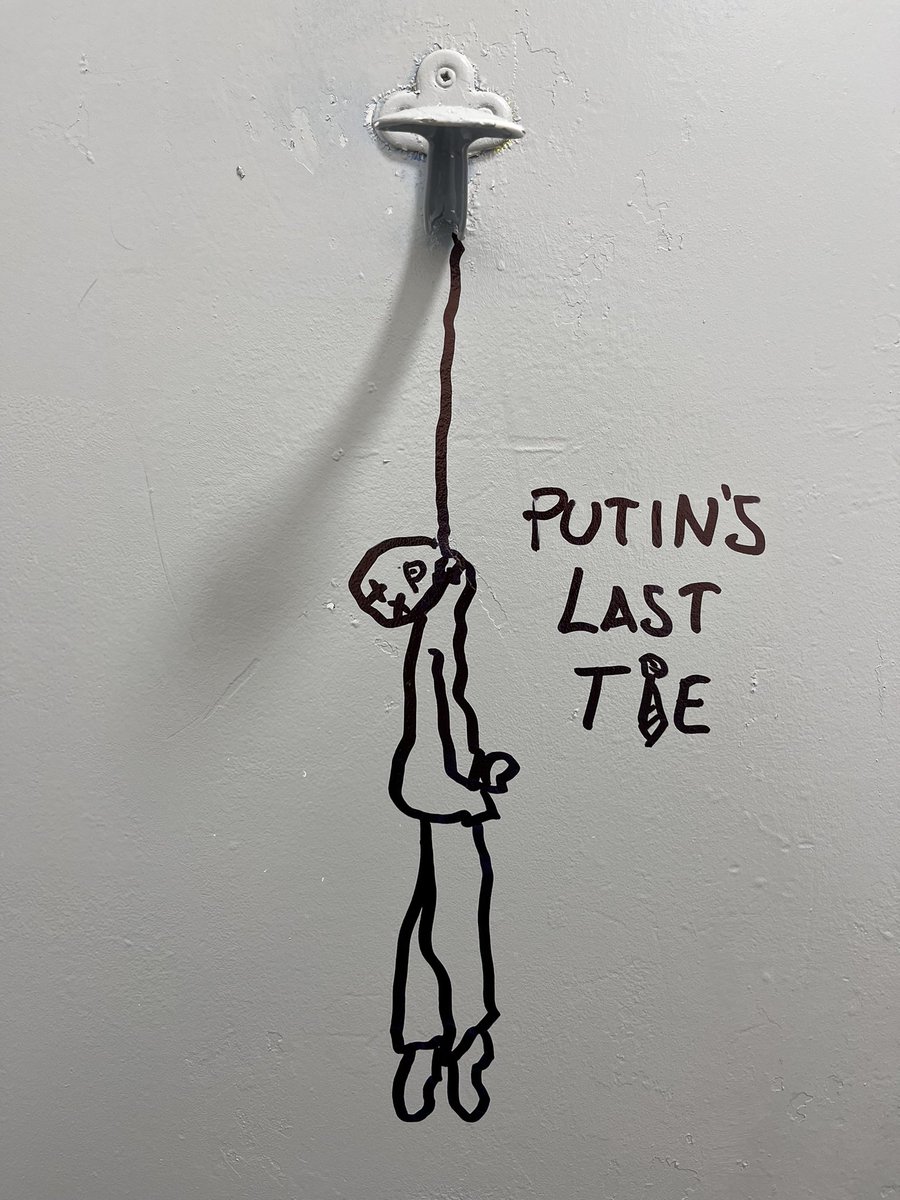 PUTIN'S
LAST
TIE
P